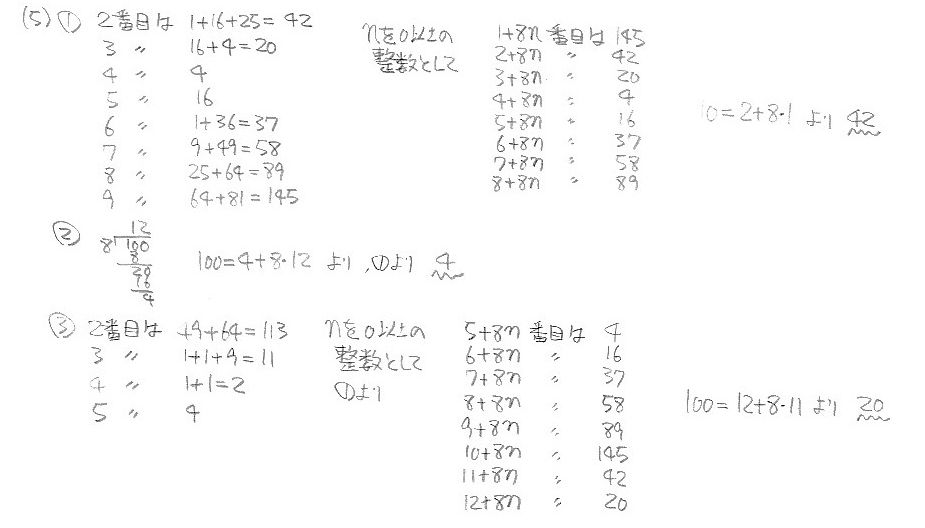 (5) ① 2番目は 1+16+25=42
3 〃 16+4=20
4 〃 4
5 〃 16
6 〃 1+36=37
7 〃 9+49=58
8 〃 25+64=89
9 〃 64+81=145
nを0以上の
整数として
1+8n 番目は 145
2+8n 〃 42
3+8n 〃 20
4+8n 〃 4
5+8n 〃 16
6+8n 〃 37
7+8n 〃 58
8+8n 〃 89
10=2+8・1 より 42
② 12
8)100
8
20
16
4
100=4+8・12 より,①より 4
③ 2番目は 49+64=113
3 〃 1+1+9=11
4 〃 1+1=2
5 〃 4
nを0以上の
整数として
①より
5+8n 番目は 4
6+8n 〃 16
7+8n 〃 37
8+8n 〃 58
9+8n 〃 89
10+8n 〃 145
11+8n 〃 42
12+8n 〃 20
100=12+8・11 より 20